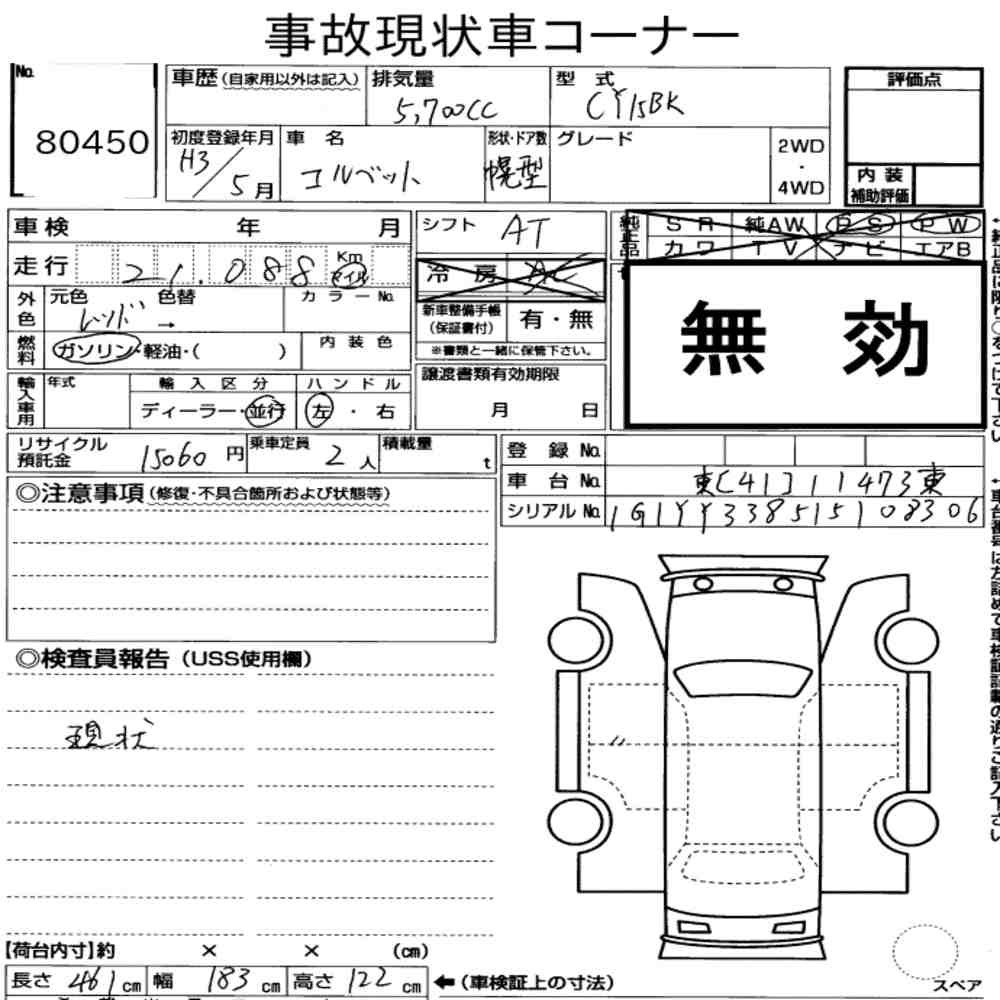 事故現状車コーナー
No. 80450
車歴(自家用以外は記入) 排気量 5,700CC 型式 CY15BK 評価点
初度登録年月 H3/5月 車名 コルベット 形状・ドア数 幌型 グレード 2WD・4WD
内装補助評価
車検 年 月 シフト AT 純正品 SR 純AW PS PW
カワ TV ナビ エアB
走行 21.088 Km マイル 冷房 AC
外色 元色 レッド → 色替 カラーNo. 新車整備手帳(保証書付) 有・無
無効
燃料 ガソリン・軽油・( ) 内装色 ※書類と一緒に保管下さい。
輸入車用 年式 輸入区分 ハンドル 譲渡書類有効期限
ディーラー・並行 左・右 月 日
リサイクル預託金 15060円 乗車定員 2人 積載量 t 登録No.
車台No. 東[41]11473東
シリアルNo. 1G1YY338515108306
◎注意事項(修復・不具合箇所および状態等)
◎検査員報告(USS使用欄)
現状
【荷台内寸】約 × × (cm)
長さ 461cm 幅 183cm 高さ 122cm ←(車検証上の寸法)
スペア